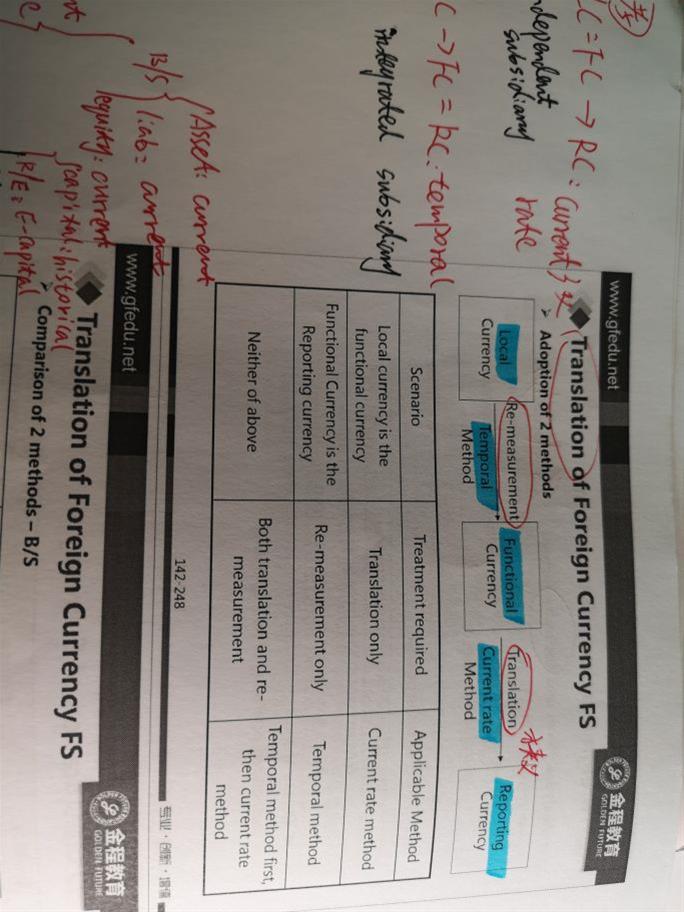 LC = FC → RC: current
rate
independent
subsidiary
LC → FC = RC: temporal
integrated subsidiary
B/S
Asset: current
liab: current
equity: current
capital: historical
R/E: E-capital
www.gfedu.net
金程教育
GOLDEN FUTURE
Translation of Foreign Currency FS
Adoption of 2 methods
Local
Currency
Re-measurement
Temporal
Method
Functional
Currency
Translation
Current rate
Method
Reporting
Currency
Scenario Treatment required Applicable Method
Local currency is the
functional currency
Translation only
Current rate method
Functional Currency is the
Reporting currency
Re-measurement only
Temporal method
Neither of above
Both translation and re-
measurement
Temporal method first,
then current rate
method
142-248
专业·创新·增值
www.gfedu.net
金程教育
GOLDEN FUTURE
Translation of Foreign Currency FS
Comparison of 2 methods – B/S